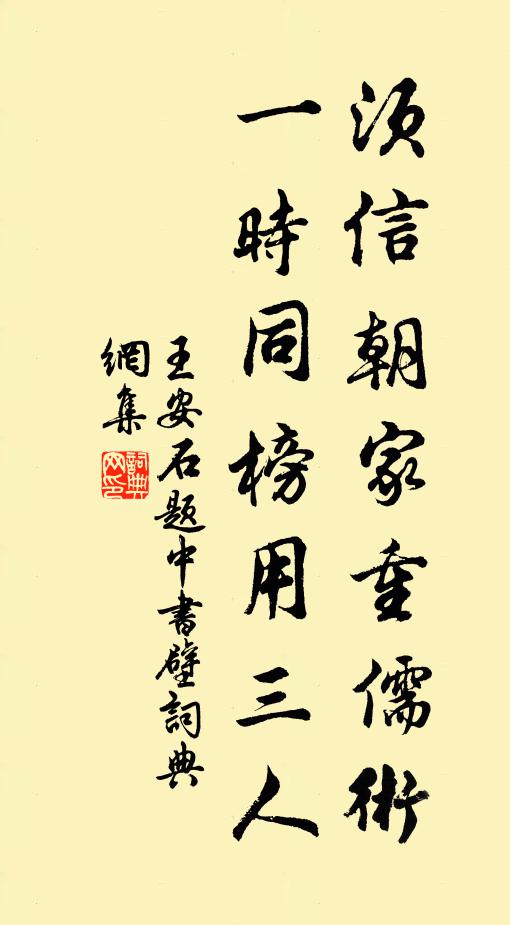 須信朝家重儒術
一時同榜用三人
王安石題中書壁詞典
網集
詞典
网印